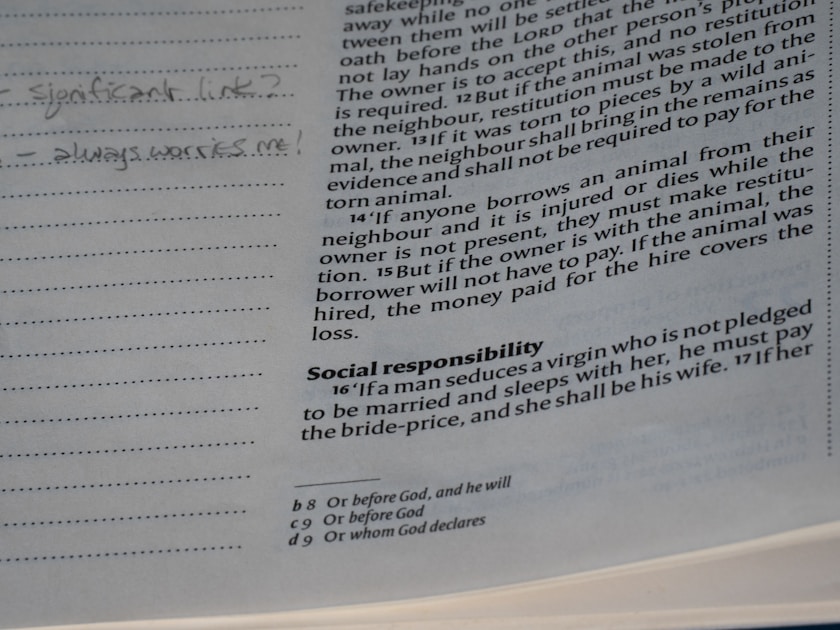 – significant link?
– always worries me!
safekeeping
away while no one
tween them will be settled
oath before the LORD that the
not lay hands on the other person's
The owner is to accept this, and no restitution
is required. 12 But if the animal was stolen from
the neighbour, restitution must be made to the
owner. 13 If it was torn to pieces by a wild ani-
mal, the neighbour shall bring in the remains as
evidence and shall not be required to pay for the
torn animal.
14 ‘If anyone borrows an animal from their
neighbour and it is injured or dies while the
owner is not present, they must make restitu-
tion. 15 But if the owner is with the animal, the
borrower will not have to pay. If the animal was
hired, the money paid for the hire covers the
loss.
Social responsibility
16 ‘If a man seduces a virgin who is not pledged
to be married and sleeps with her, he must pay
the bride-price, and she shall be his wife. 17 If her
b 8 Or before God, and he will
c 9 Or before God
d 9 Or whom God declares